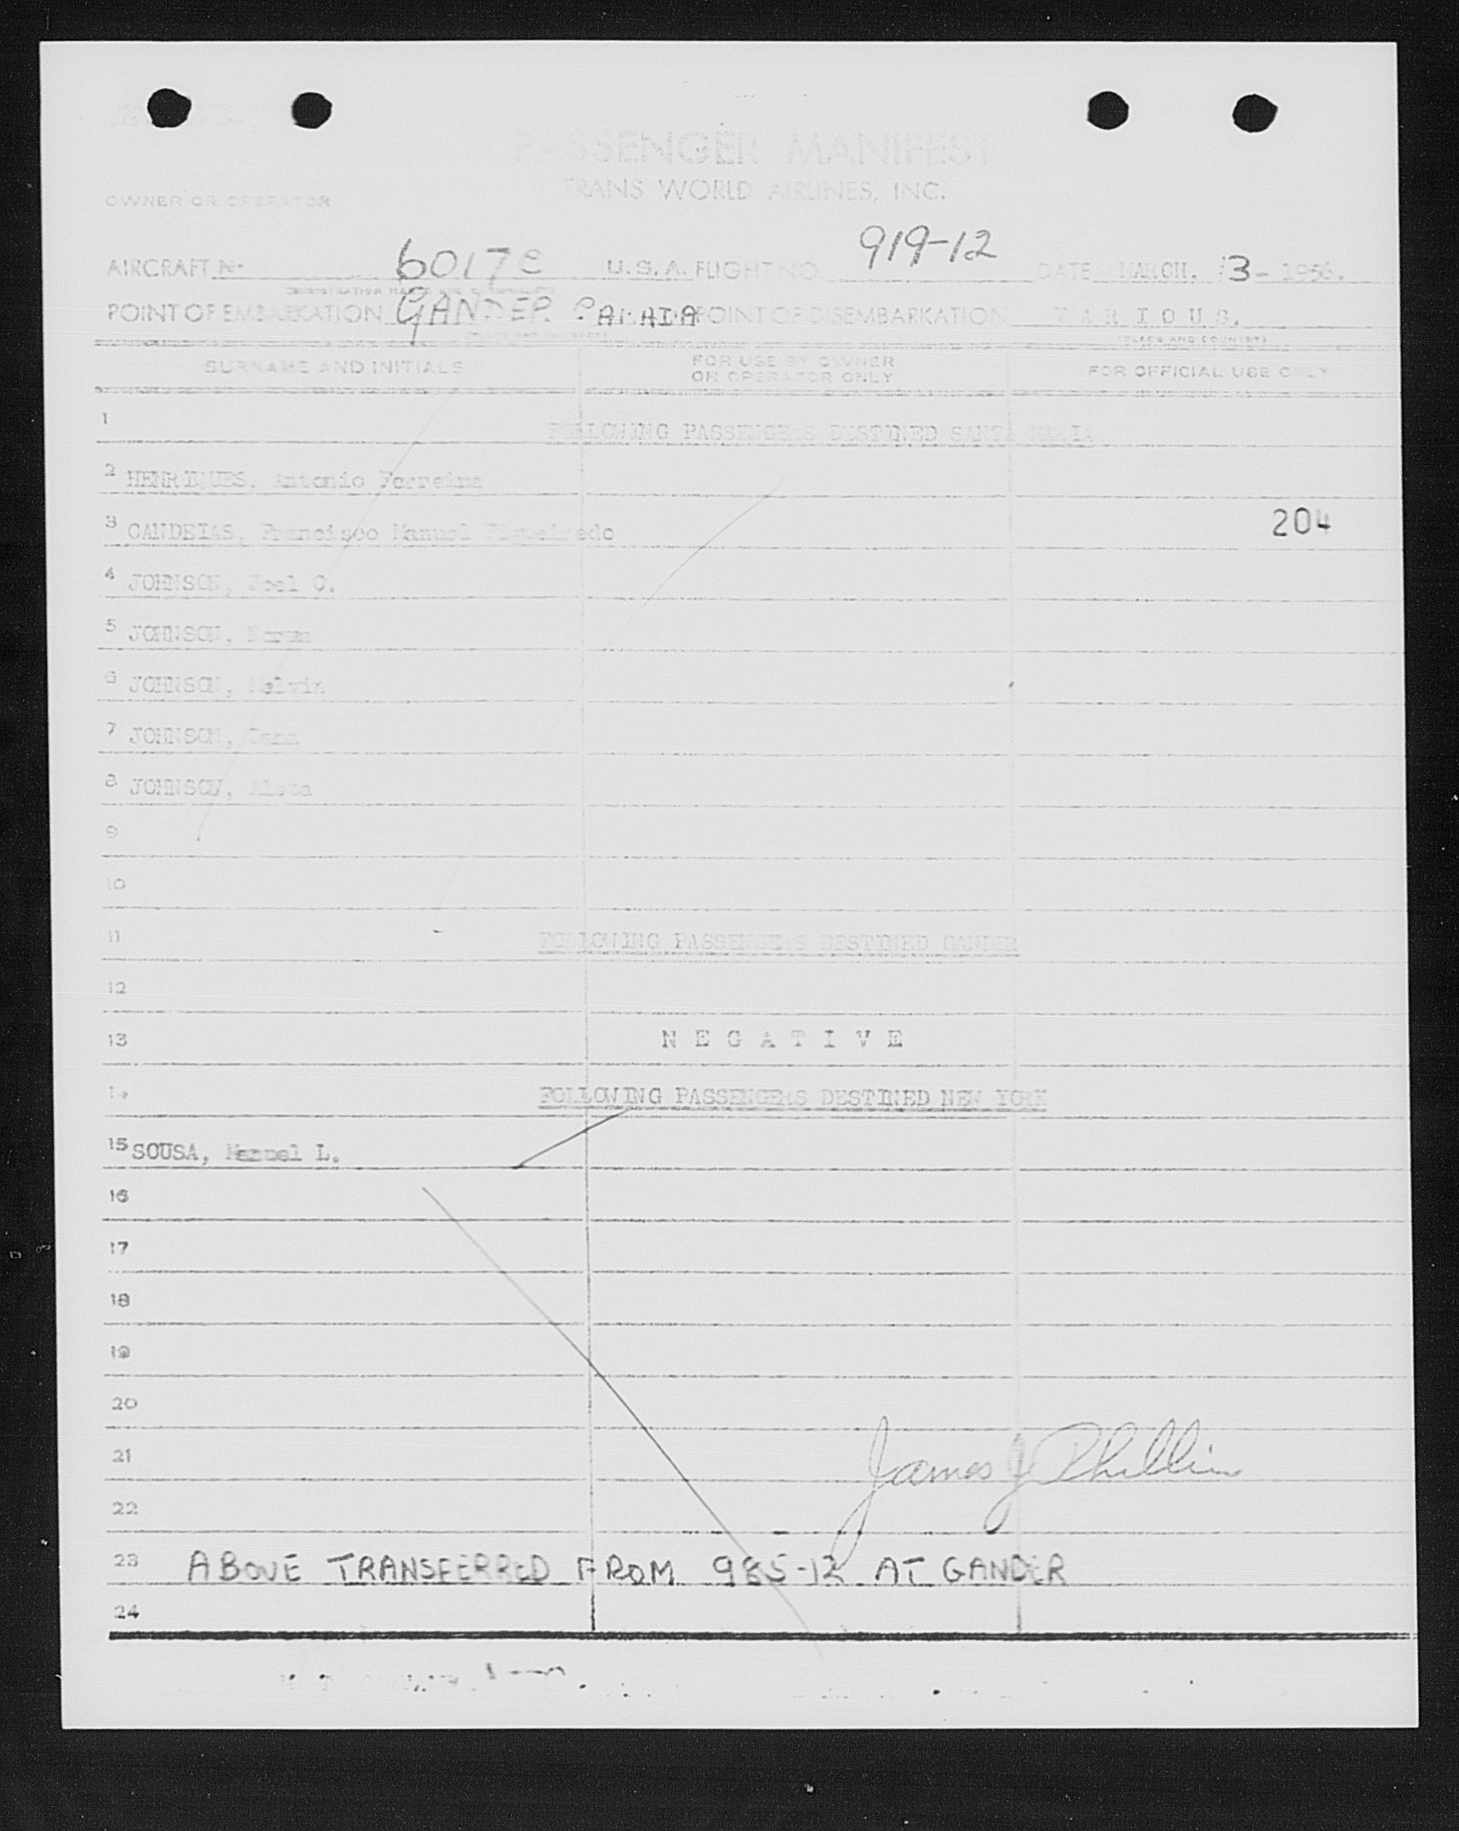 PASSENGER MANIFEST
TRANS WORLD AIRLINES, INC.
OWNER OR OPERATOR
AIRCRAFT No 6017C U.S.A. FLIGHT NO. 919-12 DATE MARCH. 13- 1956.
POINT OF EMBARKATION GANDER CANADA POINT OF DISEMBARKATION V A R I O U S.
(PLACE AND COUNTRY)
SURNAME AND INITIALS FOR USE BY OWNER OR OPERATOR ONLY FOR OFFICIAL USE ONLY
1 FOLLOWING PASSENGERS DESTINED SANTA MARIA
2 HENRIQUES, Antonio Ferreira
3 CANDEIAS, Francisco Manuel Figueiredo 204
4 JOHNSON, Joel C.
5 JOHNSON,
6 JOHNSON, Melvin
7 JOHNSON,
8 JOHNSON,
9
10
11 FOLLOWING PASSENGERS DESTINED GANDER
12
13 N E G A T I V E
14 FOLLOWING PASSENGERS DESTINED NEW YORK
15 SOUSA, Manuel L.
16
17
18
19
20
21 James J Phillin
22
23 ABOVE TRANSFERRED FROM 985-12 AT GANDER
24